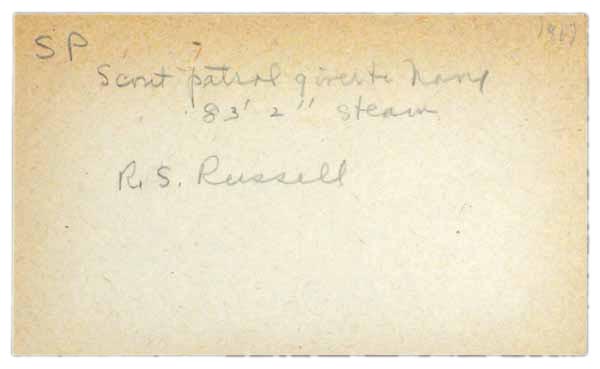 SP
Scout patrol given to Navy
83' 2" steam
R. S. Russell